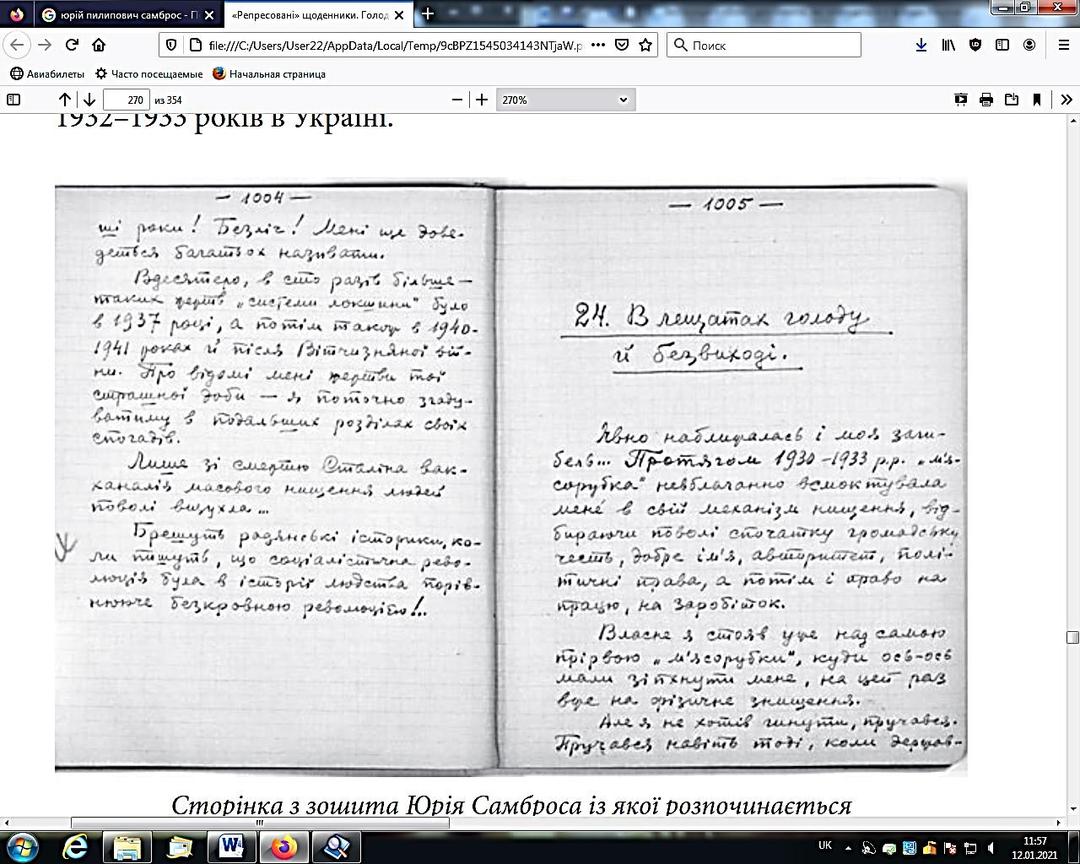 юрій пилипович самброс - П
«Репресовані» щоденники. Голод
file:///C:/Users/User22/AppData/Local/Temp/9cBPZ1545034143NTjaW.p
Поиск
Авиабилеты
Часто посещаемые
Начальная страница
270 из 354
270%
1932–1933 років в Україні.
— 1004 —
ші роки! Безліч! Мені ще дове-
деться багатьох називати.
Вдесятеро, в сто разів більше —
таких жертв „системи локшини" було
в 1937 році, а потім також в 1940-
1941 роках й після Вітчизняної вій-
ни. Про відомі мені жертви тої
страшної доби — я поточно згаду-
ватиму в подальших розділах своїх
спогадів.
Лише зі смертю Сталіна вак-
ханалія масового нищення людей
поволі вщухла...
Брешуть радянські історики, ко-
ли пишуть, що соціалістична рево-
люція була в історії людства порів-
нююче безкровною революцією!..
— 1005 —
24. В лещатах голоду
й безвиході.
Явно наближалась і моя заги-
бель... Протягом 1930–1933 р.р. „м'я-
сорубка" невблаганно всмоктувала
мене в свій механізм нищення, від-
бираючи поволі спочатку громадську
честь, добре ім'я, авторитет, полі-
тичні права, а потім і право на
працю, на заробіток.
Власне я стояв уже над самою
прірвою „м'ясорубки", куди ось-ось
мали зіпхнути мене, на цей раз
вже на фізичне знищення.
Але я не хотів гинути, пручався.
Пручався навіть тоді, коли держав-
Сторінка з зошита Юрія Самброса із якої розпочинається
UK
11:57
12.01.2021